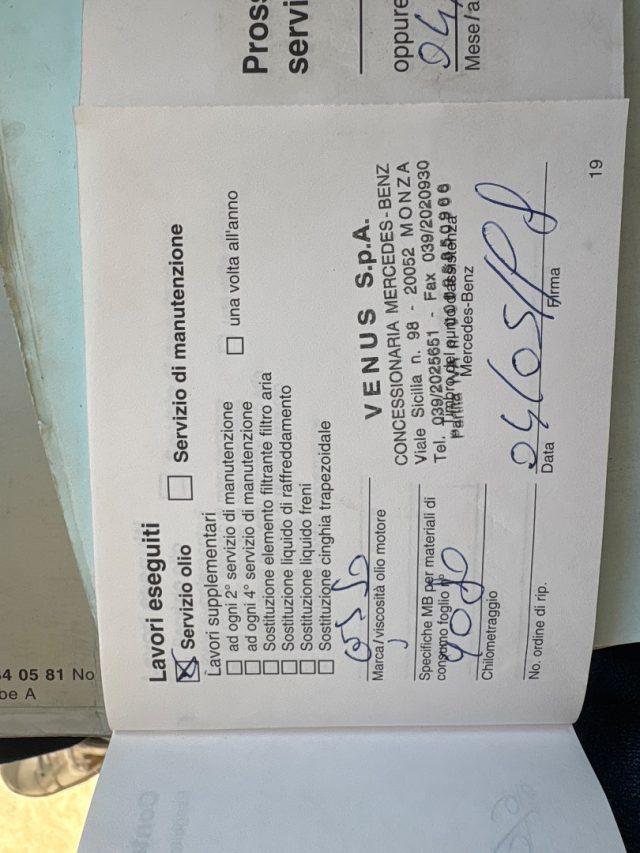 Pross
servi
oppure
04/
Mese/a
Lavori eseguiti
Servizio olio
Servizio di manutenzione
Lavori supplementari
ad ogni 2° servizio di manutenzione
una volta all'anno
ad ogni 4° servizio di manutenzione
Sostituzione elemento filtrante filtro aria
Sostituzione liquido di raffreddamento
Sostituzione liquido freni
Sostituzione cinghia trapezoidale
Marca/viscosità olio motore
Specifiche MB per materiali di
consumo foglio n°
9080
Chilometraggio
No. ordine di rip.
VENUS S.p.A.
CONCESSIONARIA MERCEDES-BENZ
Viale Sicilia n. 98 - 20052 MONZA
Tel. 039/2025651 - Fax 039/2020930
Mercedes-Benz
Data
Firma
19
4 05 81 No
be A